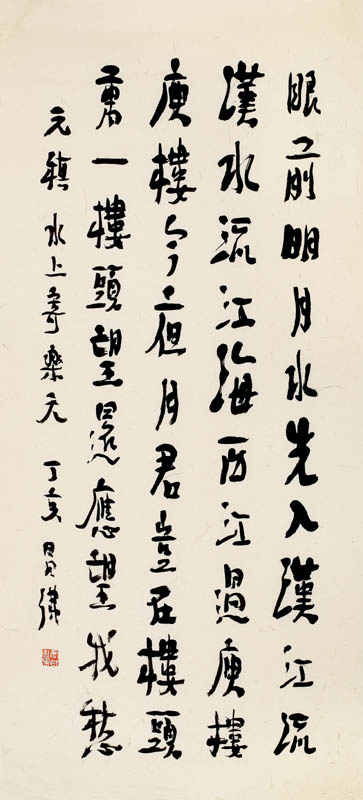 眼前明月水先入漢江流
漢水流江海西江過庾樓
庾樓今夜月君豈在樓頭
萬一樓頭望還應望我愁
元稹水上寄樂天 丁亥